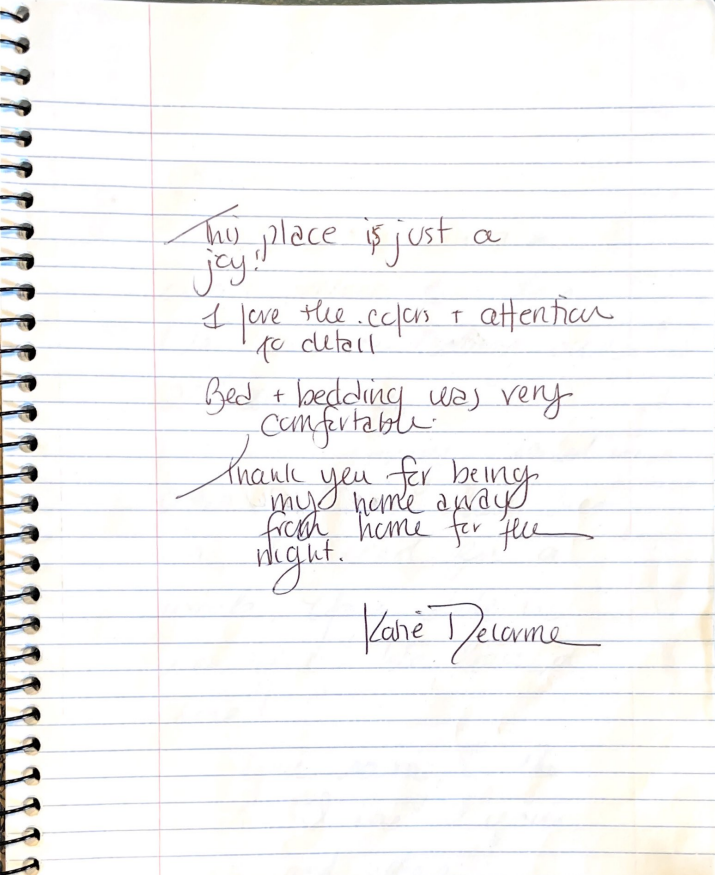 This place is just a
joy!
I love the colors + attention
to detail
Bed + bedding was very
comfortable.
Thank you for being
my home away
from home for the
night.
Katie Delorme